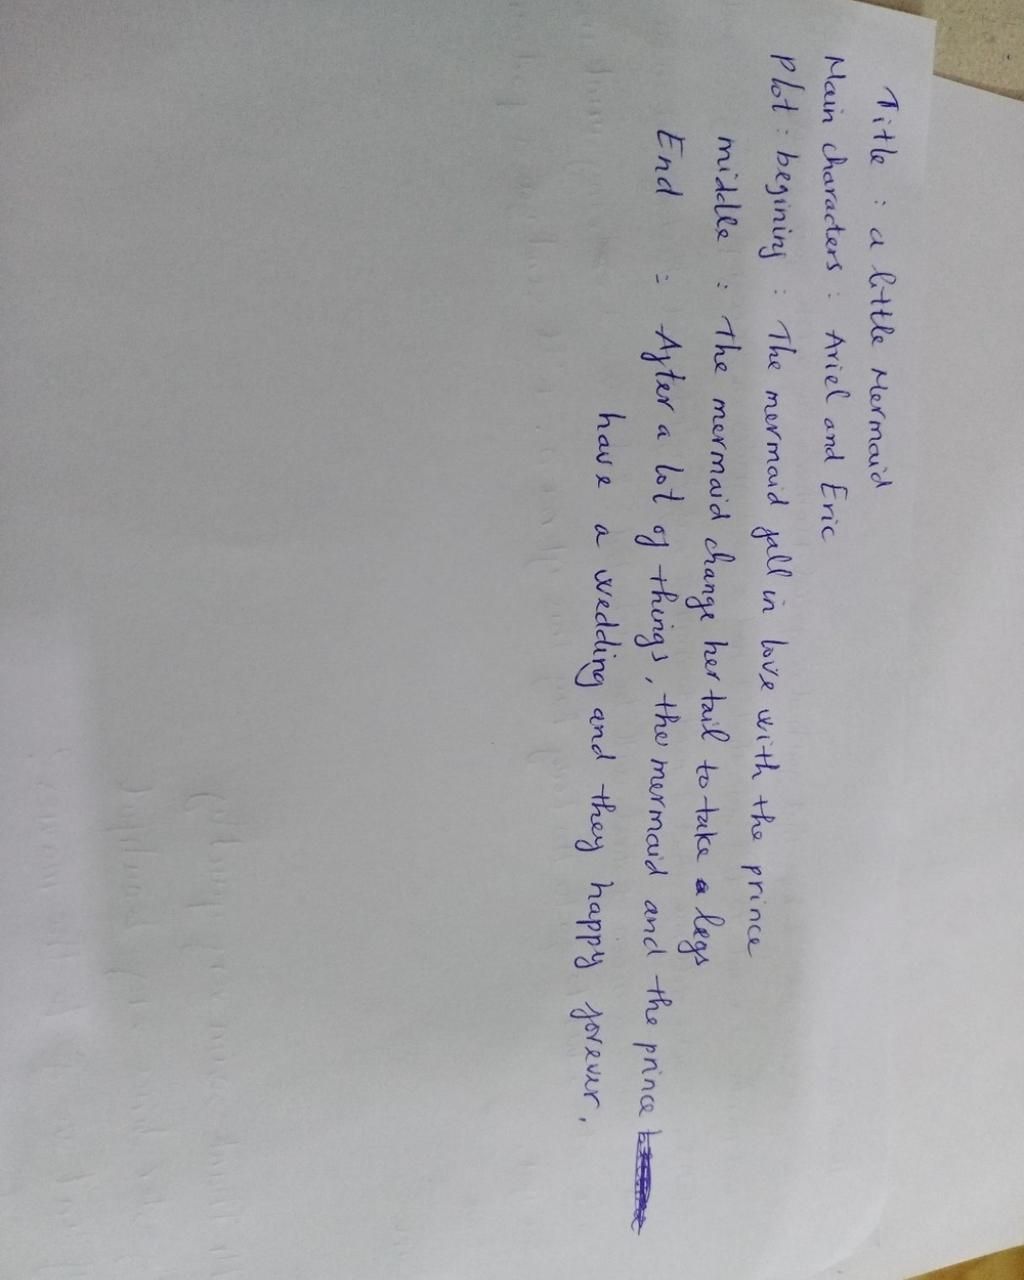 Title : a little Mermaid
Main characters : Ariel and Eric
Plot : begining : The mermaid fall in love with the prince
middle : The mermaid change her tail to take a legs
End : After a lot of things, the mermaid and the prince
have a wedding and they happy forever.